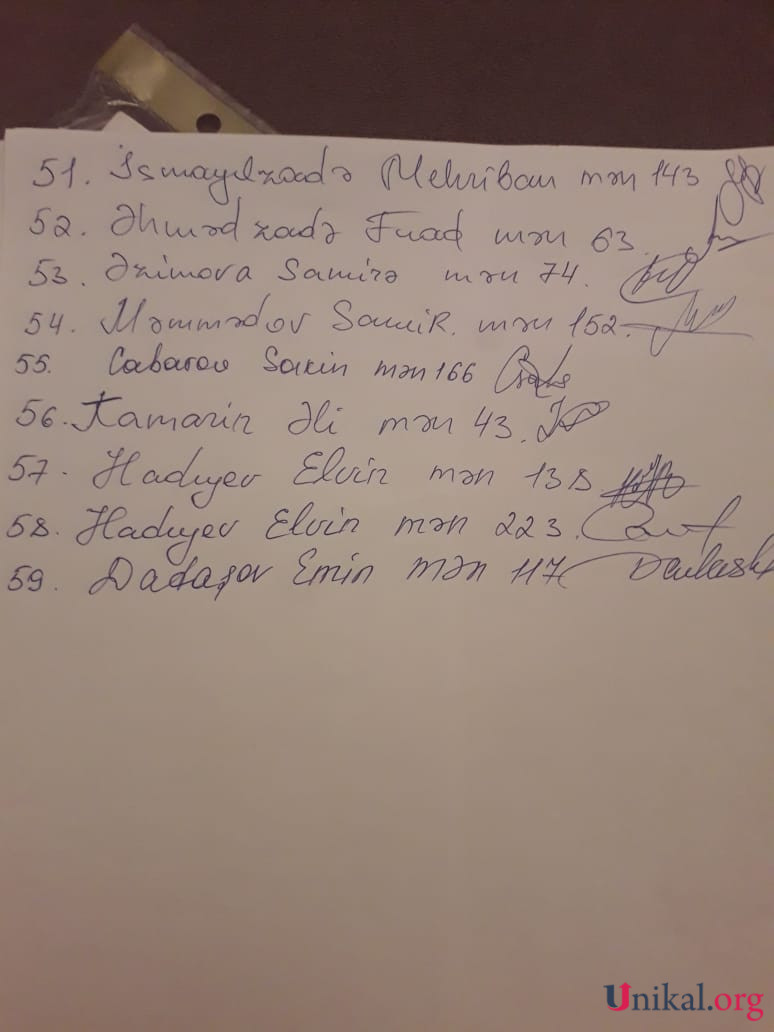 51. İsmayılzadə Mehriban mən 143
52. Əhmədzadə Fuad mən 63.
53. Əzimova Samirə mən 74.
54. Məmmədov Samir. mən 152.
55. Cabarov Sakin mən 166
56. Kamarin Əli mən 43.
57. Hadıyev Elvin mən 138
58. Hadıyev Elvin mən 223.
59. Dadaşov Emin mən 117
Unikal.org